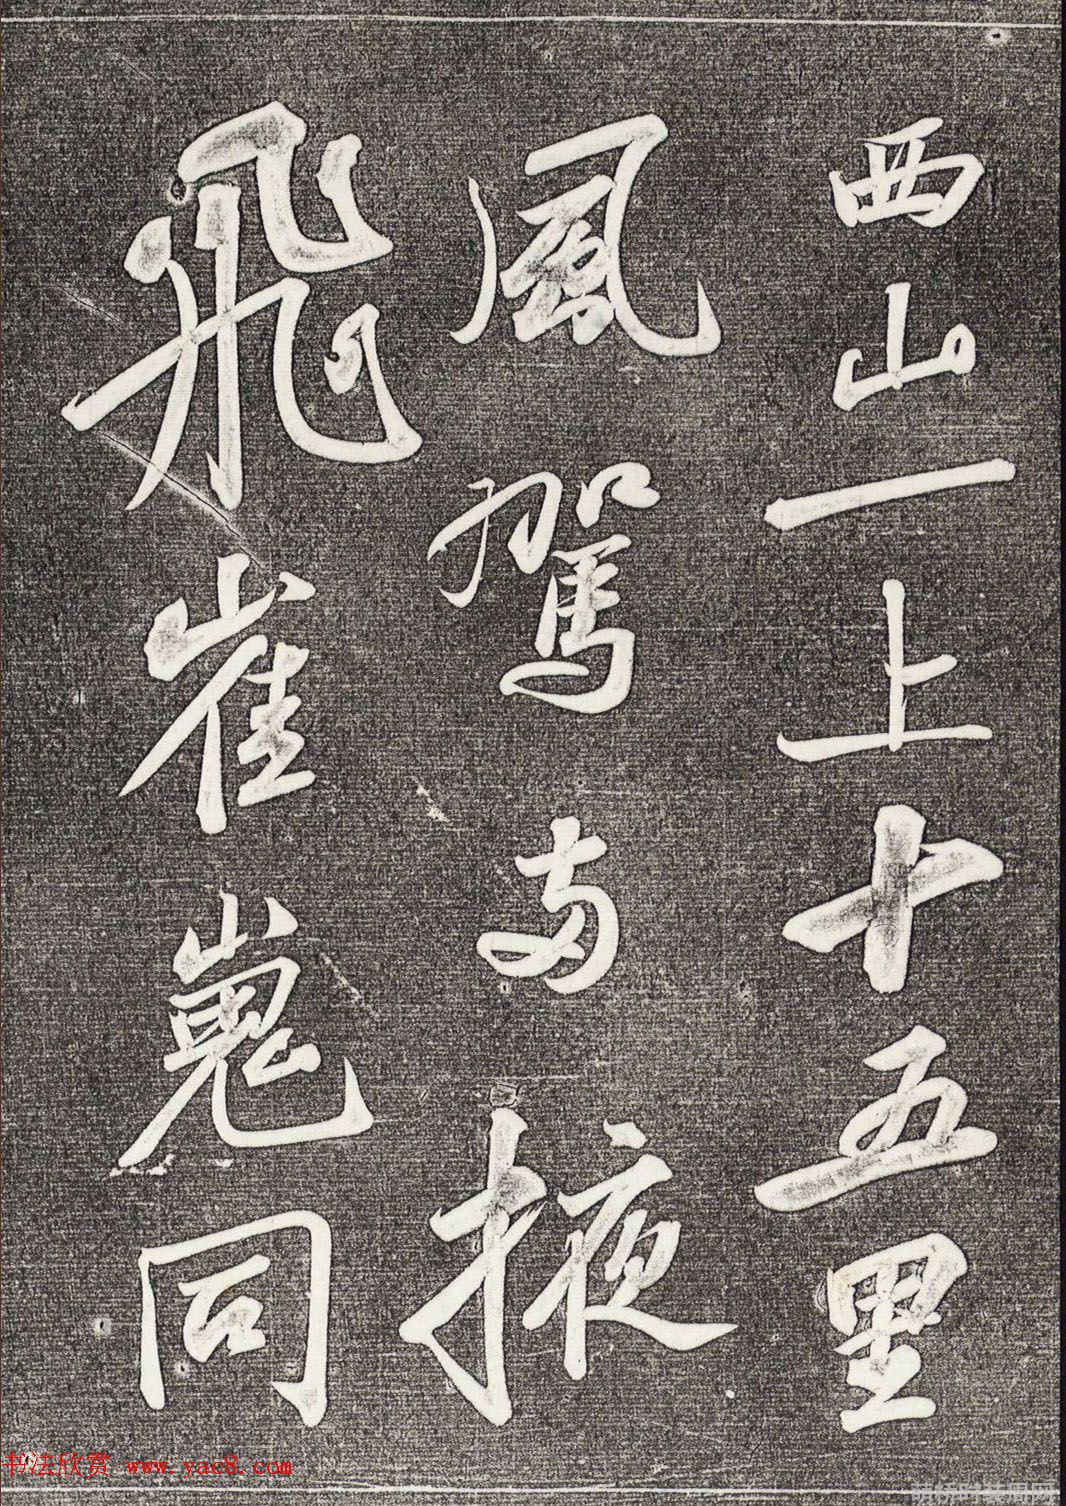 西山一上十五里
風駕兩掖
飛崔嵬同
书法欣赏 www.yac8.com